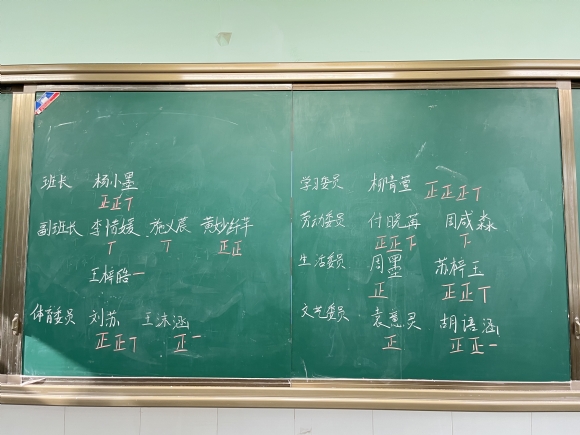 班长 杨小墨
正正丅
副班长 李恺媛 施义晨 黄妙
丅 丅 正正
王梓皓 一
体育委员 刘苏 王沐涵
正正丅 正一
学习委员 柳青萱 正正正丅
劳动委员 付晓苒 周咸淼
正正下 丅
生活委员 周墨 苏梓玉
正 正正丅
文艺委员 袁意灵 胡语涵
正 正正一